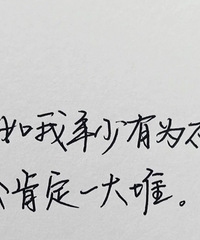 如我年少有为不
肯定一大堆。